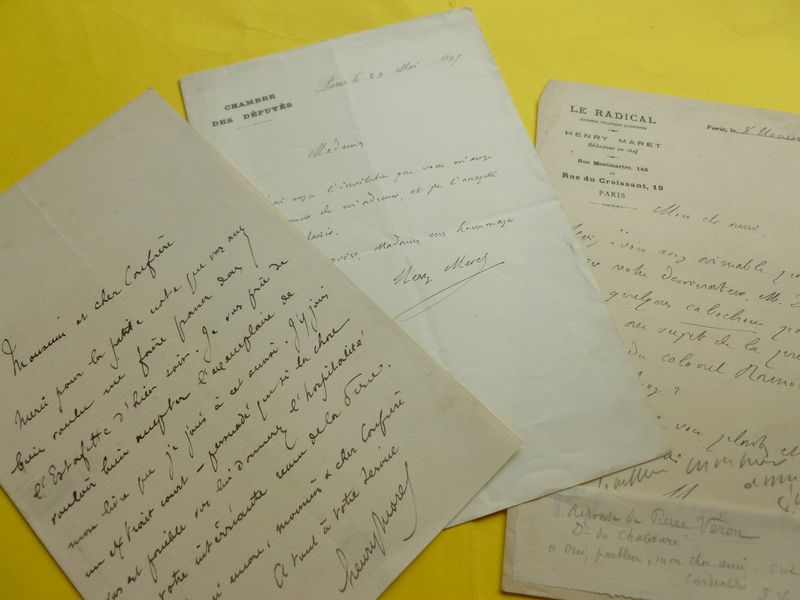 Monsieur et cher Confrère
Merci pour la petite note que vous avez
bien voulu me faire passer dans
l'Estafette d'hier soir. Je vous prie de
vouloir bien accepter l'exemplaire de
mon livre que je joins à cet envoi. J'y joins
un extrait court – persuadé que si la chose
vous est possible vous lui donnerez l'hospitalité
votre intéressante revue de la Presse.
encore, monsieur & cher Confrère
A tout à votre service
Henry Maret
CHAMBRE
DES DÉPUTÉS
Paris le 23 Mai 1897
Madame
reçu l'invitation que vous m'avez
de m'adresser, et je l'accepte
plaisir.
Madame mes hommages
Henry Maret
LE RADICAL
JOURNAL POLITIQUE QUOTIDIEN
HENRY MARET
Rédacteur en chef
Rue Montmartre, 142
ET
Rue du Croissant, 19
PARIS
Paris, le 8
Mon cher ami.
vous aimable
votre dessinateur, M.
quelques cabochons
au sujet de la
du colonel
vous plaît
Réponse de Pierre Véron
Dr du Charivari
Oui, parbleu, mon cher ami.
Cordialités